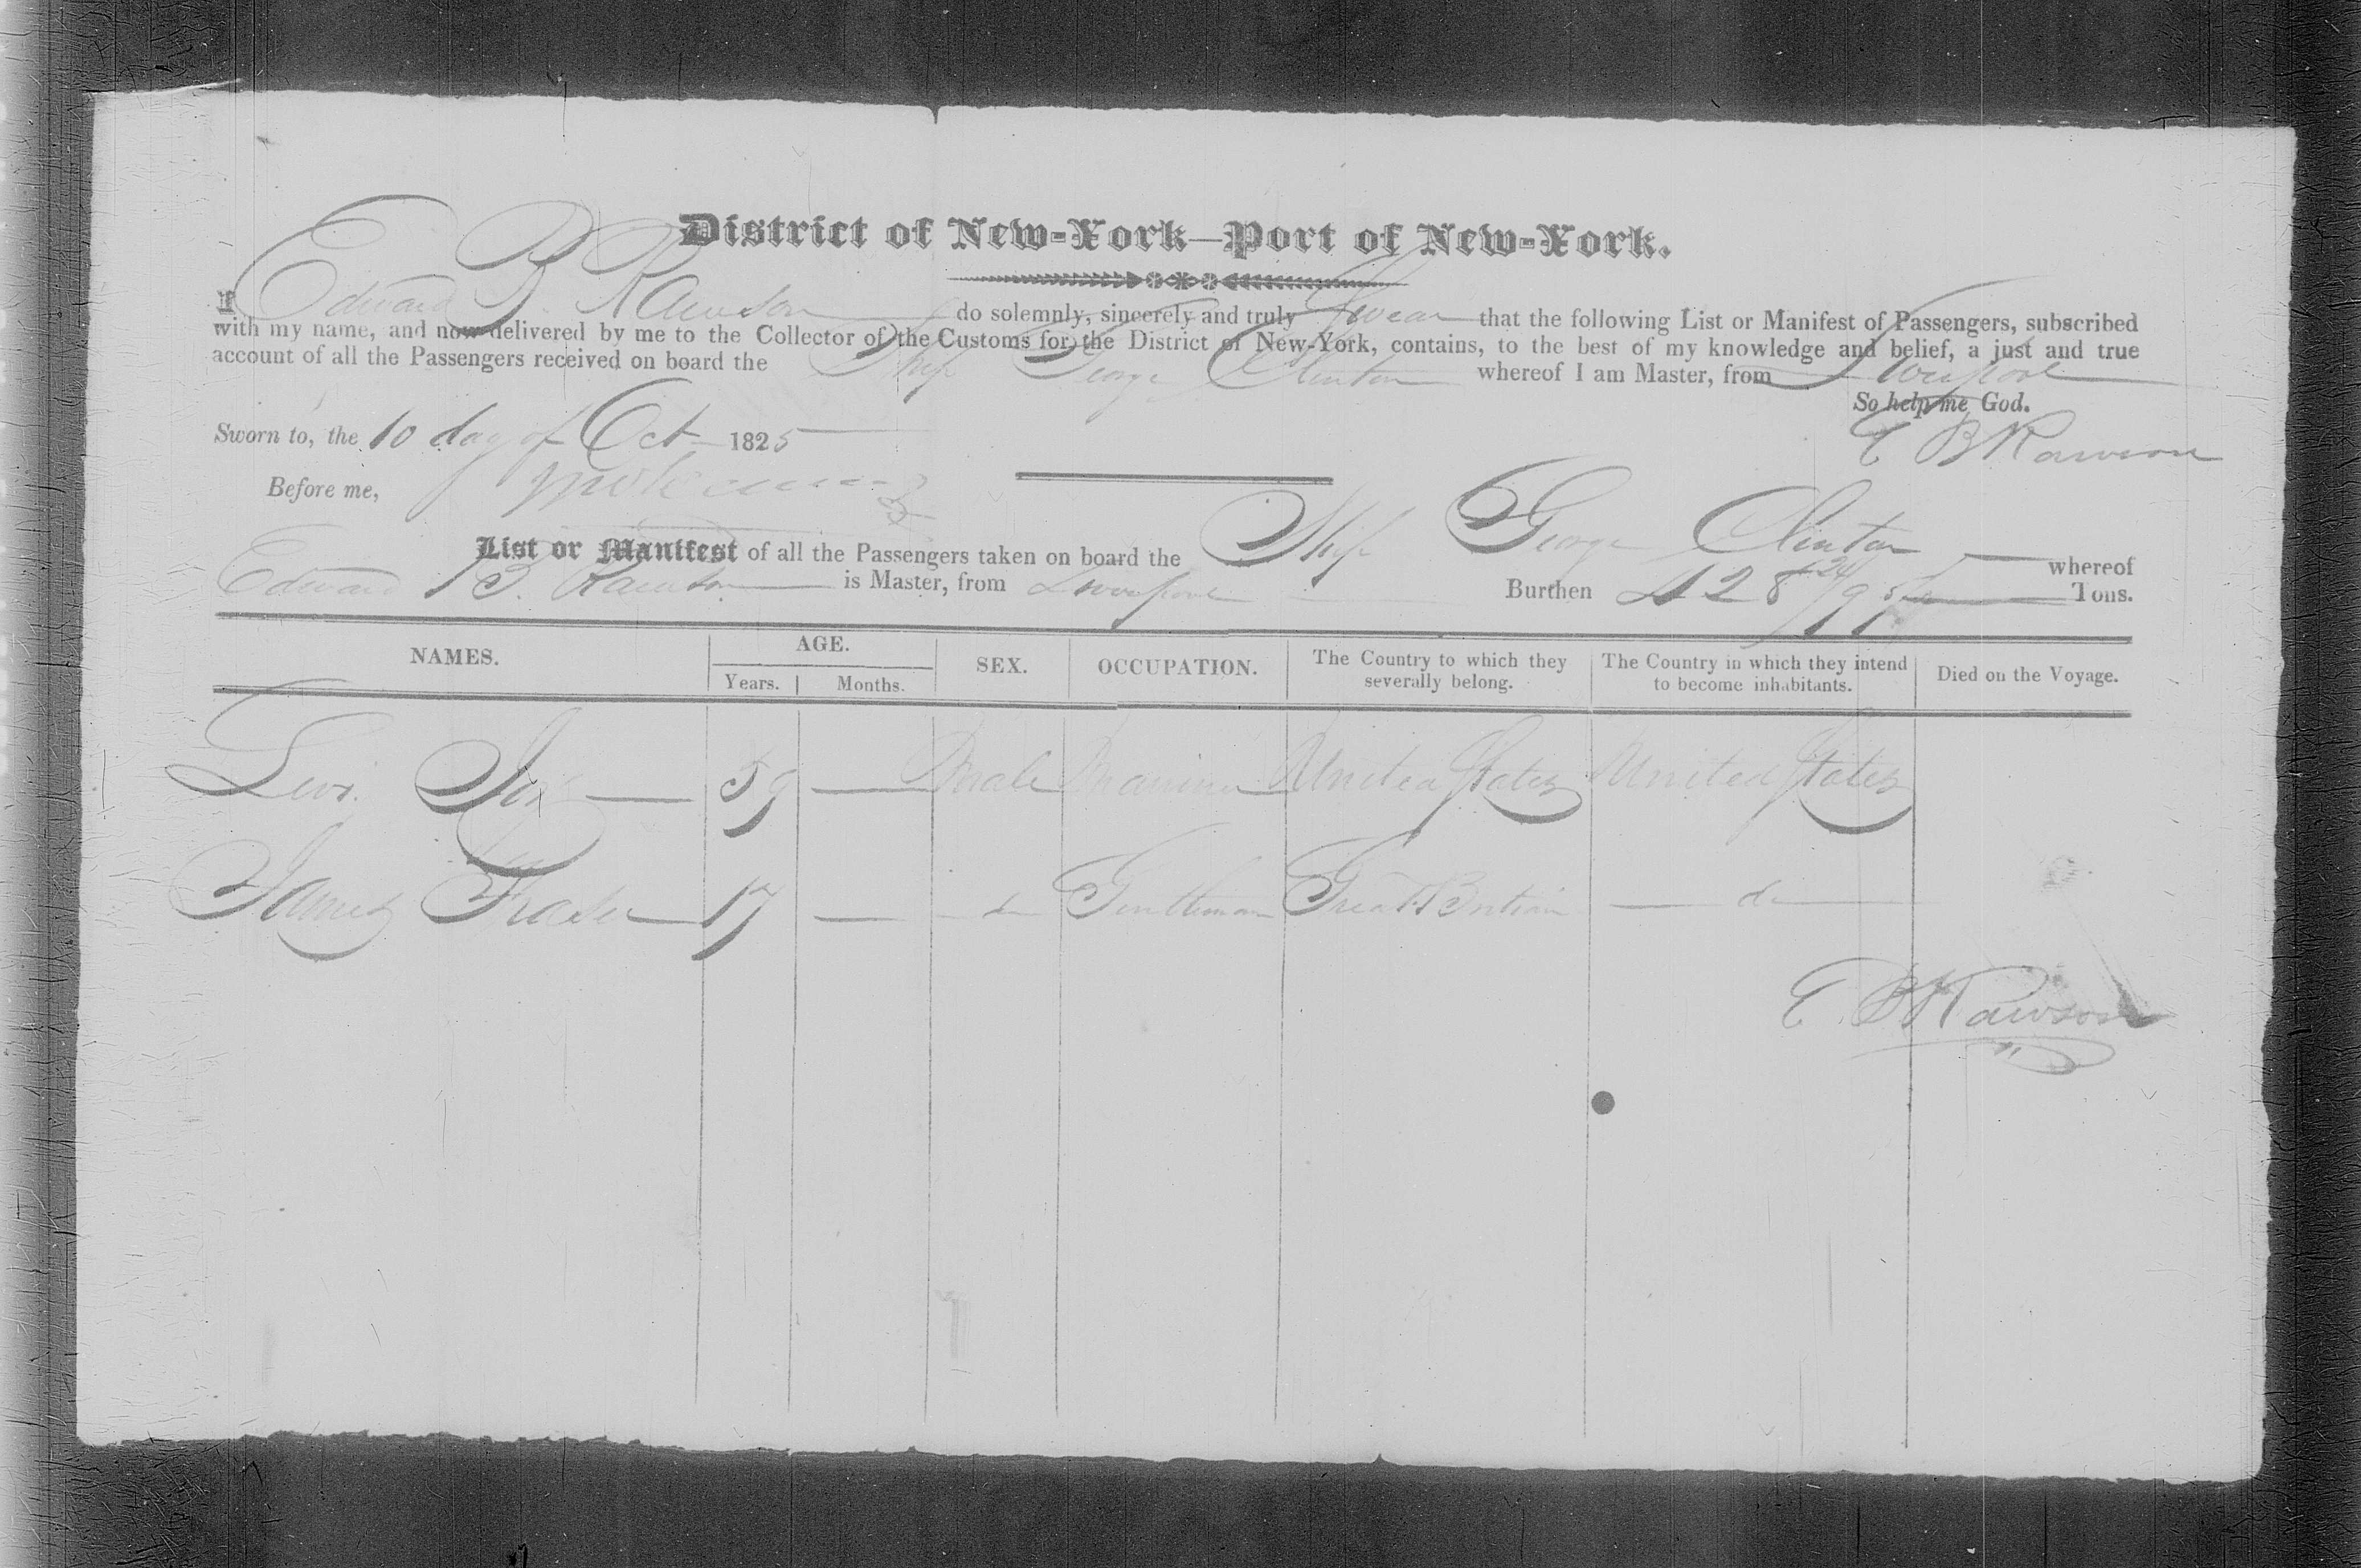 District of New-York—Port of New-York.
I Edward B. Rawson do solemnly, sincerely and truly Swear that the following List or Manifest of Passengers, subscribed
with my name, and now delivered by me to the Collector of the Customs for the District of New-York, contains, to the best of my knowledge and belief, a just and true
account of all the Passengers received on board the Ship George Clinton whereof I am Master, from Liverpool
So help me God.
Sworn to, the 10 day of Oct 1825
E B Rawson
Before me,
List or Manifest of all the Passengers taken on board the Ship George Clinton whereof
Edward B. Rawson is Master, from Liverpool Burthen 428 24/95 Tons.
NAMES. AGE. SEX. OCCUPATION. The Country to which they severally belong. The Country in which they intend to become inhabitants. Died on the Voyage.
Years. Months.
Levi 59 — Male Mariner United States United States
James Fraser 17 — do Gentleman Great Britain — do —
E. B Rawson